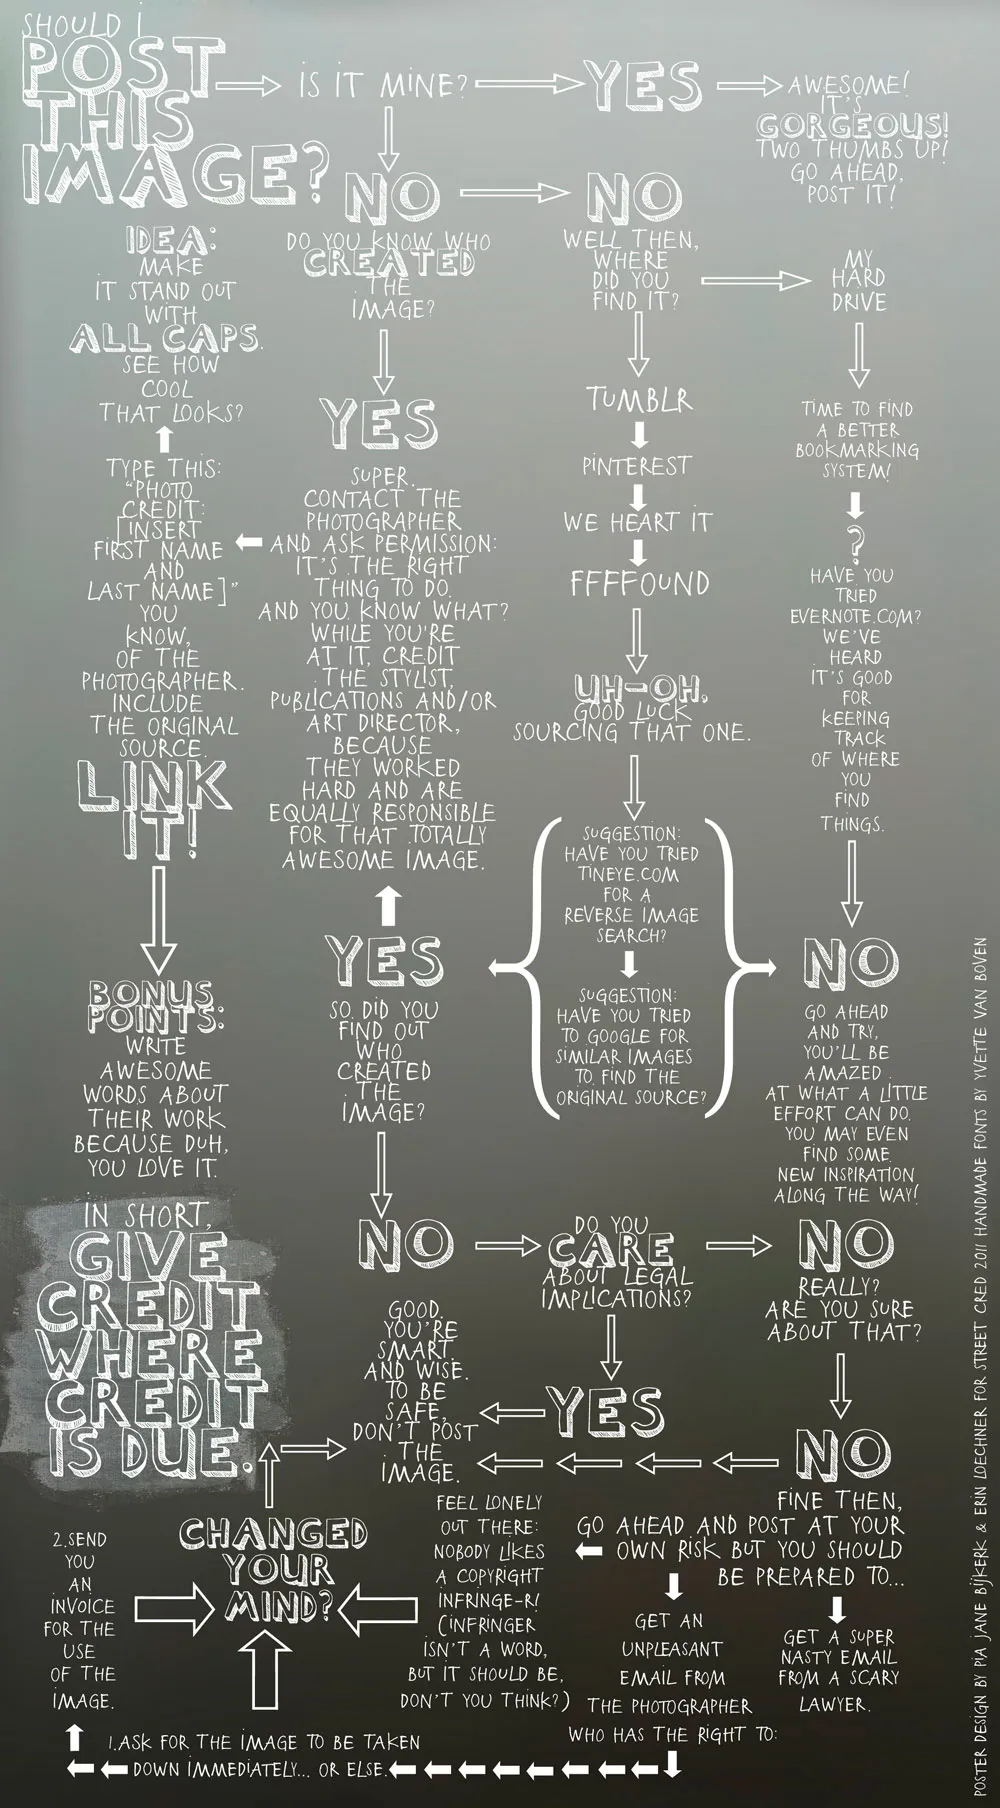 SHOULD I
POST
THIS
IMAGE?
IS IT MINE?
YES
AWESOME!
IT'S
GORGEOUS!
TWO THUMBS UP!
GO AHEAD,
POST IT!
NO
DO YOU KNOW WHO
CREATED
THE
IMAGE?
NO
WELL THEN,
WHERE
DID YOU
FIND IT?
MY
HARD
DRIVE
IDEA:
MAKE
IT STAND OUT
WITH
ALL CAPS.
SEE HOW
COOL
THAT LOOKS?
TYPE THIS:
"PHOTO
CREDIT:
[INSERT
FIRST NAME
AND
LAST NAME]"
YOU
KNOW,
OF THE
PHOTOGRAPHER.
INCLUDE
THE ORIGINAL
SOURCE.
LINK
IT!
BONUS
POINTS:
WRITE
AWESOME
WORDS ABOUT
THEIR WORK
BECAUSE DUH,
YOU LOVE IT.
IN SHORT,
GIVE
CREDIT
WHERE
CREDIT
IS DUE.
YES
SUPER.
CONTACT THE
PHOTOGRAPHER
AND ASK PERMISSION:
IT'S THE RIGHT
THING TO DO.
AND YOU KNOW WHAT?
WHILE YOU'RE
AT IT, CREDIT
THE STYLIST,
PUBLICATIONS AND/OR
ART DIRECTOR,
BECAUSE
THEY WORKED
HARD AND ARE
EQUALLY RESPONSIBLE
FOR THAT TOTALLY
AWESOME IMAGE.
YES
SO, DID YOU
FIND OUT
WHO
CREATED
THE
IMAGE?
TUMBLR
PINTEREST
WE HEART IT
FFFFOUND
UH-OH,
GOOD LUCK
SOURCING THAT ONE.
SUGGESTION:
HAVE YOU TRIED
TINEYE.COM
FOR A
REVERSE IMAGE
SEARCH?
SUGGESTION:
HAVE YOU TRIED
TO GOOGLE FOR
SIMILAR IMAGES
TO FIND THE
ORIGINAL SOURCE?
TIME TO FIND
A BETTER
BOOKMARKING
SYSTEM!
?
HAVE YOU
TRIED
EVERNOTE.COM?
WE'VE
HEARD
IT'S GOOD
FOR
KEEPING
TRACK
OF WHERE
YOU
FIND
THINGS.
NO
GO AHEAD
AND TRY,
YOU'LL BE
AMAZED
AT WHAT A LITTLE
EFFORT CAN DO.
YOU MAY EVEN
FIND SOME
NEW INSPIRATION
ALONG THE WAY!
NO
DO YOU
CARE
ABOUT LEGAL
IMPLICATIONS?
NO
REALLY?
ARE YOU SURE
ABOUT THAT?
GOOD.
YOU'RE
SMART.
AND WISE.
TO BE
SAFE,
DON'T POST
THE
IMAGE.
YES
NO
FINE THEN,
GO AHEAD AND POST AT YOUR
OWN RISK BUT YOU SHOULD
BE PREPARED TO...
FEEL LONELY
OUT THERE:
NOBODY LIKES
A COPYRIGHT
INFRINGE-R!
(INFRINGER
ISN'T A WORD,
BUT IT SHOULD BE,
DON'T YOU THINK?)
GET AN
UNPLEASANT
EMAIL FROM
THE PHOTOGRAPHER
WHO HAS THE RIGHT TO:
GET A SUPER
NASTY EMAIL
FROM A SCARY
LAWYER.
1.ASK FOR THE IMAGE TO BE TAKEN
DOWN IMMEDIATELY... OR ELSE.
2.SEND
YOU
AN
INVOICE
FOR THE
USE
OF THE
IMAGE.
CHANGED
YOUR
MIND?
POSTER DESIGN BY PIA JANE BIJKERK & ERIN LOECHNER FOR STREET CRED 2011 HANDMADE FONTS BY YVETTE VAN BOVEN